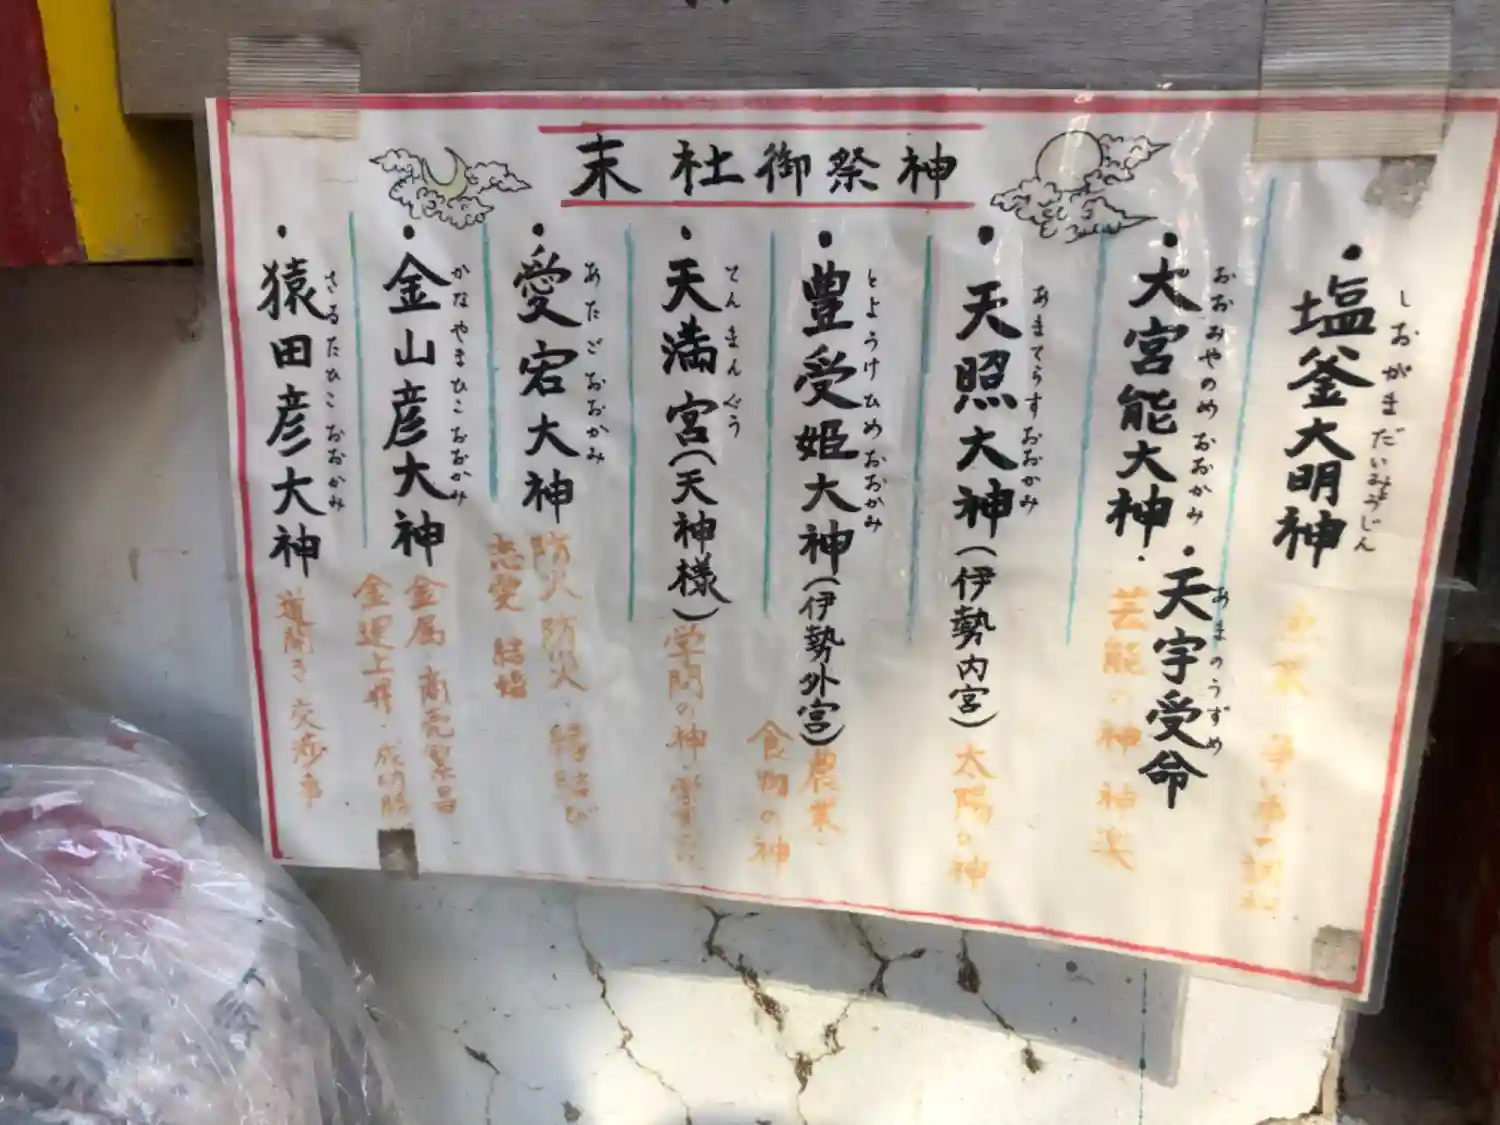 末社御祭神
・塩釜大明神
しおがまだいみょうじん
・大宮能大神
おおみやのめおおかみ
・天宇受命
あまのうずめ
芸能の神 神楽
・天照大神(伊勢内宮)
あまてらすおおかみ
太陽の神
・豊受姫大神(伊勢外宮)
とようけひめおおかみ
農業
食物の神
・天満宮(天神様)
てんまんぐう
学問の神
・愛宕大神
あたごおおかみ
防火 防火・縁結び
恋愛 結婚
・金山彦大神
かなやまひこおおかみ
金属 商売繁昌
金運上昇・成功
・猿田彦大神
さるたひこおおかみ
道開き 交渉事